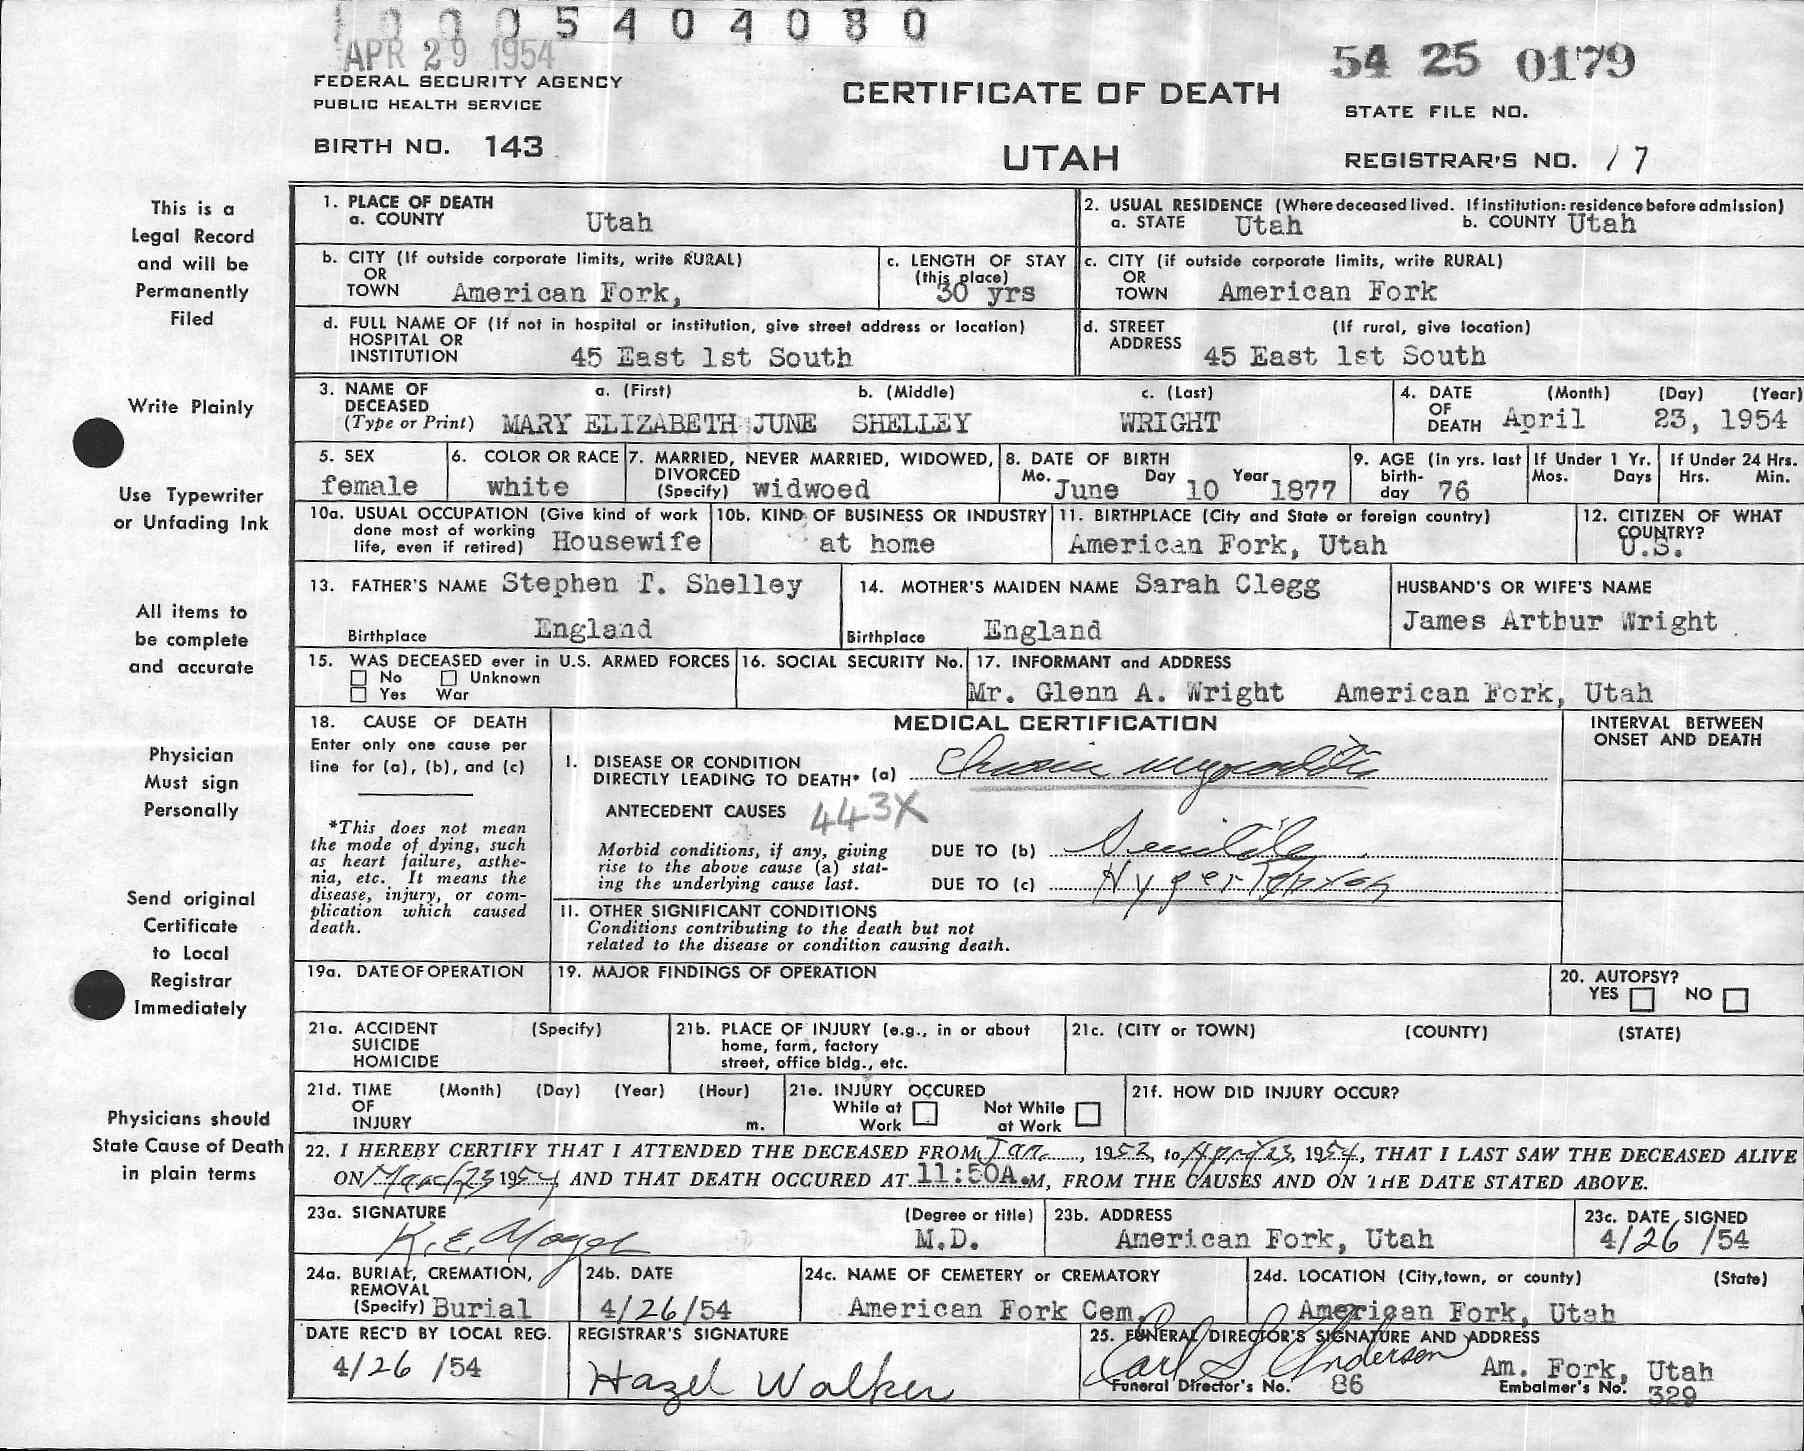 1005404080
APR 29 1954
54 25 0179
FEDERAL SECURITY AGENCY
PUBLIC HEALTH SERVICE
CERTIFICATE OF DEATH
STATE FILE NO.
BIRTH NO. 143
UTAH
REGISTRAR'S NO. 17
This is a
Legal Record
and will be
Permanently
Filed
Write Plainly
Use Typewriter
or Unfading Ink
All items to
be complete
and accurate
Physician
Must sign
Personally
Send original
Certificate
to Local
Registrar
Immediately
Physicians should
State Cause of Death
in plain terms
1. PLACE OF DEATH
a. COUNTY Utah
2. USUAL RESIDENCE (Where deceased lived. If institution: residence before admission)
a. STATE Utah b. COUNTY Utah
b. CITY (If outside corporate limits, write RURAL)
OR
TOWN American Fork,
c. LENGTH OF STAY
(this place)
30 yrs
c. CITY (if outside corporate limits, write RURAL)
OR
TOWN American Fork
d. FULL NAME OF (If not in hospital or institution, give street address or location)
HOSPITAL OR
INSTITUTION 45 East 1st South
d. STREET (If rural, give location)
ADDRESS 45 East 1st South
3. NAME OF a. (First) b. (Middle) c. (Last)
DECEASED
(Type or Print) MARY ELIZABETH JUNE SHELLEY WRIGHT
4. DATE (Month) (Day) (Year)
OF
DEATH April 23, 1954
5. SEX
female
6. COLOR OR RACE
white
7. MARRIED, NEVER MARRIED, WIDOWED,
DIVORCED
(Specify) widwoed
8. DATE OF BIRTH
Mo. June Day 10 Year 1877
9. AGE (in yrs. last
birth-
day 76
If Under 1 Yr.
Mos. Days
If Under 24 Hrs.
Hrs. Min.
10a. USUAL OCCUPATION (Give kind of work
done most of working
life, even if retired) Housewife
10b. KIND OF BUSINESS OR INDUSTRY
at home
11. BIRTHPLACE (City and State or foreign country)
American Fork, Utah
12. CITIZEN OF WHAT
COUNTRY?
U.S.
13. FATHER'S NAME Stephen T. Shelley
Birthplace England
14. MOTHER'S MAIDEN NAME Sarah Clegg
Birthplace England
HUSBAND'S OR WIFE'S NAME
James Arthur Wright
15. WAS DECEASED ever in U.S. ARMED FORCES
No Unknown
Yes War
16. SOCIAL SECURITY No.
17. INFORMANT and ADDRESS
Mr. Glenn A. Wright American Fork, Utah
18. CAUSE OF DEATH
Enter only one cause per
line for (a), (b), and (c)
*This does not mean
the mode of dying, such
as heart failure, asthe-
nia, etc. It means the
disease, injury, or com-
plication which caused
death.
MEDICAL CERTIFICATION
INTERVAL BETWEEN
ONSET AND DEATH
I. DISEASE OR CONDITION
DIRECTLY LEADING TO DEATH* (a) Chronic myocarditis
ANTECEDENT CAUSES 443X
Morbid conditions, if any, giving
rise to the above cause (a) stat-
ing the underlying cause last.
DUE TO (b) Senility
DUE TO (c) Hypertension
II. OTHER SIGNIFICANT CONDITIONS
Conditions contributing to the death but not
related to the disease or condition causing death.
19a. DATE OF OPERATION
19. MAJOR FINDINGS OF OPERATION
20. AUTOPSY?
YES NO
21a. ACCIDENT (Specify)
SUICIDE
HOMICIDE
21b. PLACE OF INJURY (e.g., in or about
home, farm, factory
street, office bldg., etc.
21c. (CITY or TOWN) (COUNTY) (STATE)
21d. TIME (Month) (Day) (Year) (Hour)
OF
INJURY m.
21e. INJURY OCCURED
While at Not While
Work at Work
21f. HOW DID INJURY OCCUR?
22. I HEREBY CERTIFY THAT I ATTENDED THE DECEASED FROM Jan., 1953, to April 23, 1954, THAT I LAST SAW THE DECEASED ALIVE
ON March 23 1954 AND THAT DEATH OCCURED AT 11:50A.M, FROM THE CAUSES AND ON THE DATE STATED ABOVE.
23a. SIGNATURE (Degree or title)
K. E. M.D.
23b. ADDRESS
American Fork, Utah
23c. DATE SIGNED
4/26/54
24a. BURIAL, CREMATION,
REMOVAL
(Specify) Burial
24b. DATE
4/26/54
24c. NAME OF CEMETERY or CREMATORY
American Fork Cem.
24d. LOCATION (City, town, or county) (State)
American Fork, Utah
DATE REC'D BY LOCAL REG.
4/26/54
REGISTRAR'S SIGNATURE
Hazel Walker
25. FUNERAL DIRECTOR'S SIGNATURE AND ADDRESS
Earl S Anderson Am. Fork, Utah
Funeral Director's No. 86 Embalmer's No. 329